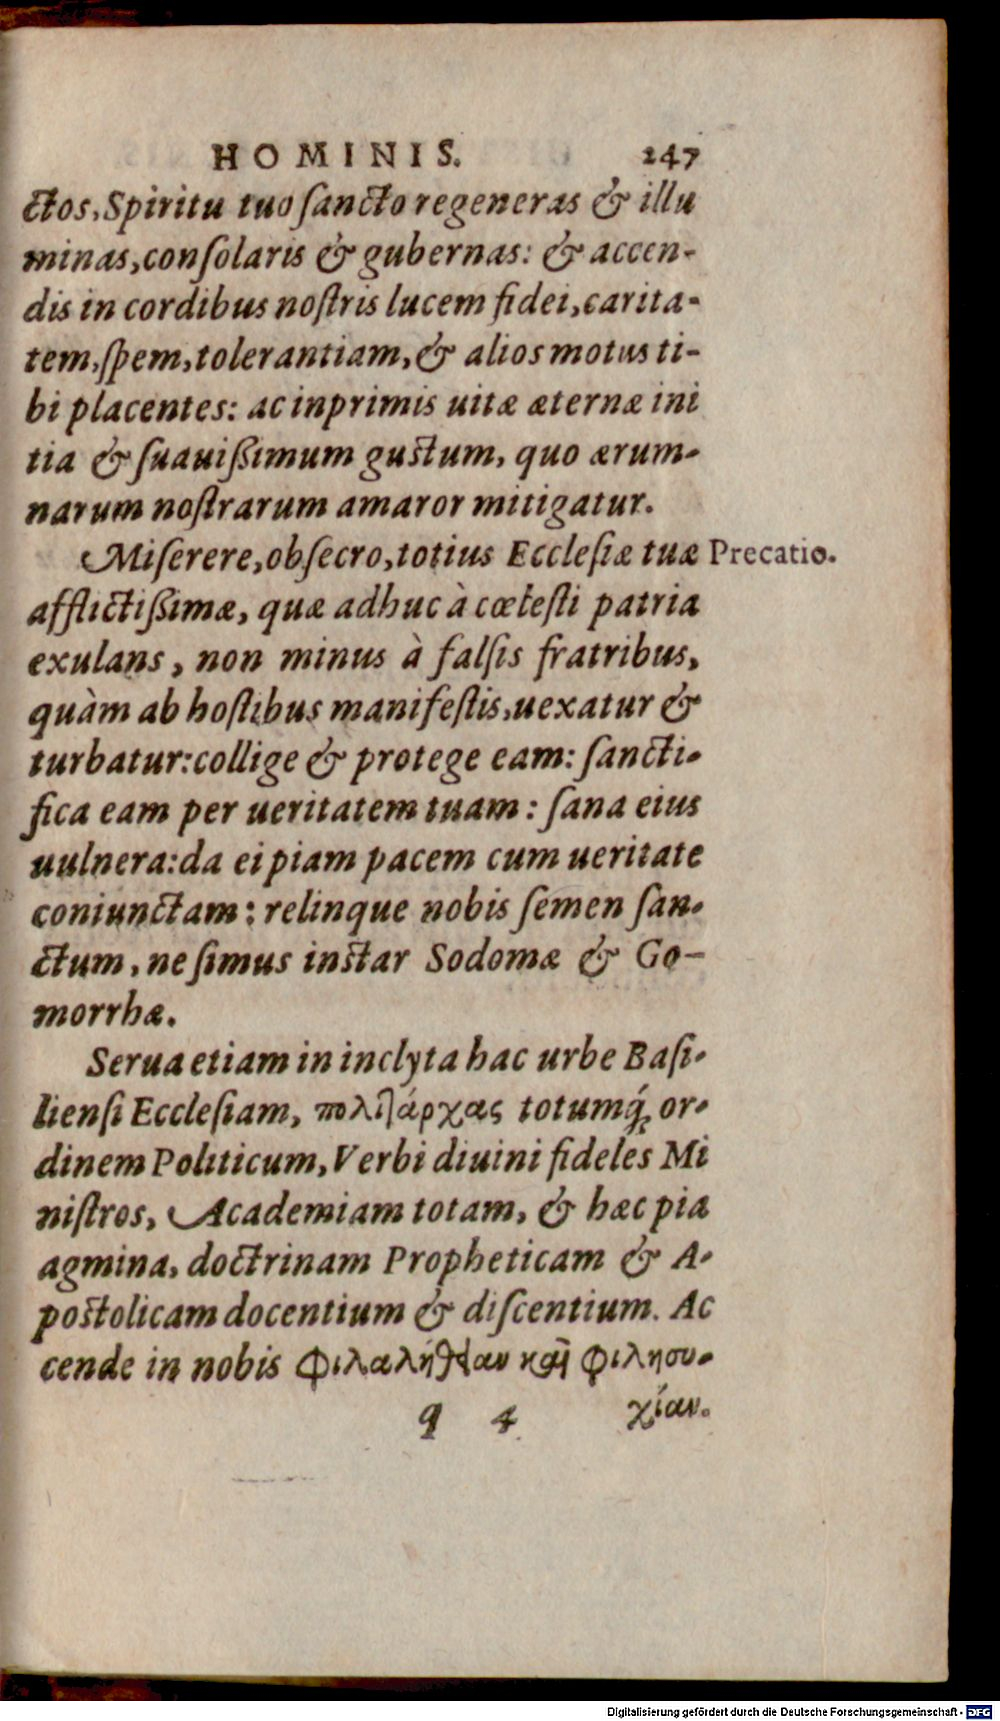 HOMINIS. 247
ctos, Spiritu tuo ſancto regeneras & illu
minas, conſolaris & gubernas: & accen-
dis in cordibus noſtris lucem fidei, carita-
tem, ſpem, tolerantiam, & alios motus ti-
bi placentes: ac inprimis uitæ æternæ ini
tia & ſuauißimum gustum, quo ærum-
narum noſtrarum amaror mitigatur.
Miſerere, obſecro, totius Eccleſiæ tuæ Precatio.
afflictißimæ, quæ adhuc à cœleſti patria
exulans, non minus à falſis fratribus,
quàm ab hoſtibus manifeſtis, uexatur &
turbatur: collige & protege eam: ſancti-
fica eam per ueritatem tuam: ſana eius
uulnera: da ei piam pacem cum ueritate
coniunctam: relinque nobis ſemen ſan-
ctum, ne ſimus instar Sodomæ & Go-
morrhæ.
Serua etiam in inclyta hac urbe Baſi-
lienſi Eccleſiam, πολιτάρχας totumq́ꝫ or-
dinem Politicum, Verbi diuini fideles Mi
niſtros, Academiam totam, & hæc pia
agmina, doctrinam Propheticam & A-
postolicam docentium & diſcentium. Ac
cende in nobis Φιλαλήθειαν καὶ Φιλησυ-
q 4 χίαν.
Digitalisierung gefördert durch die Deutsche Forschungsgemeinschaft - DFG